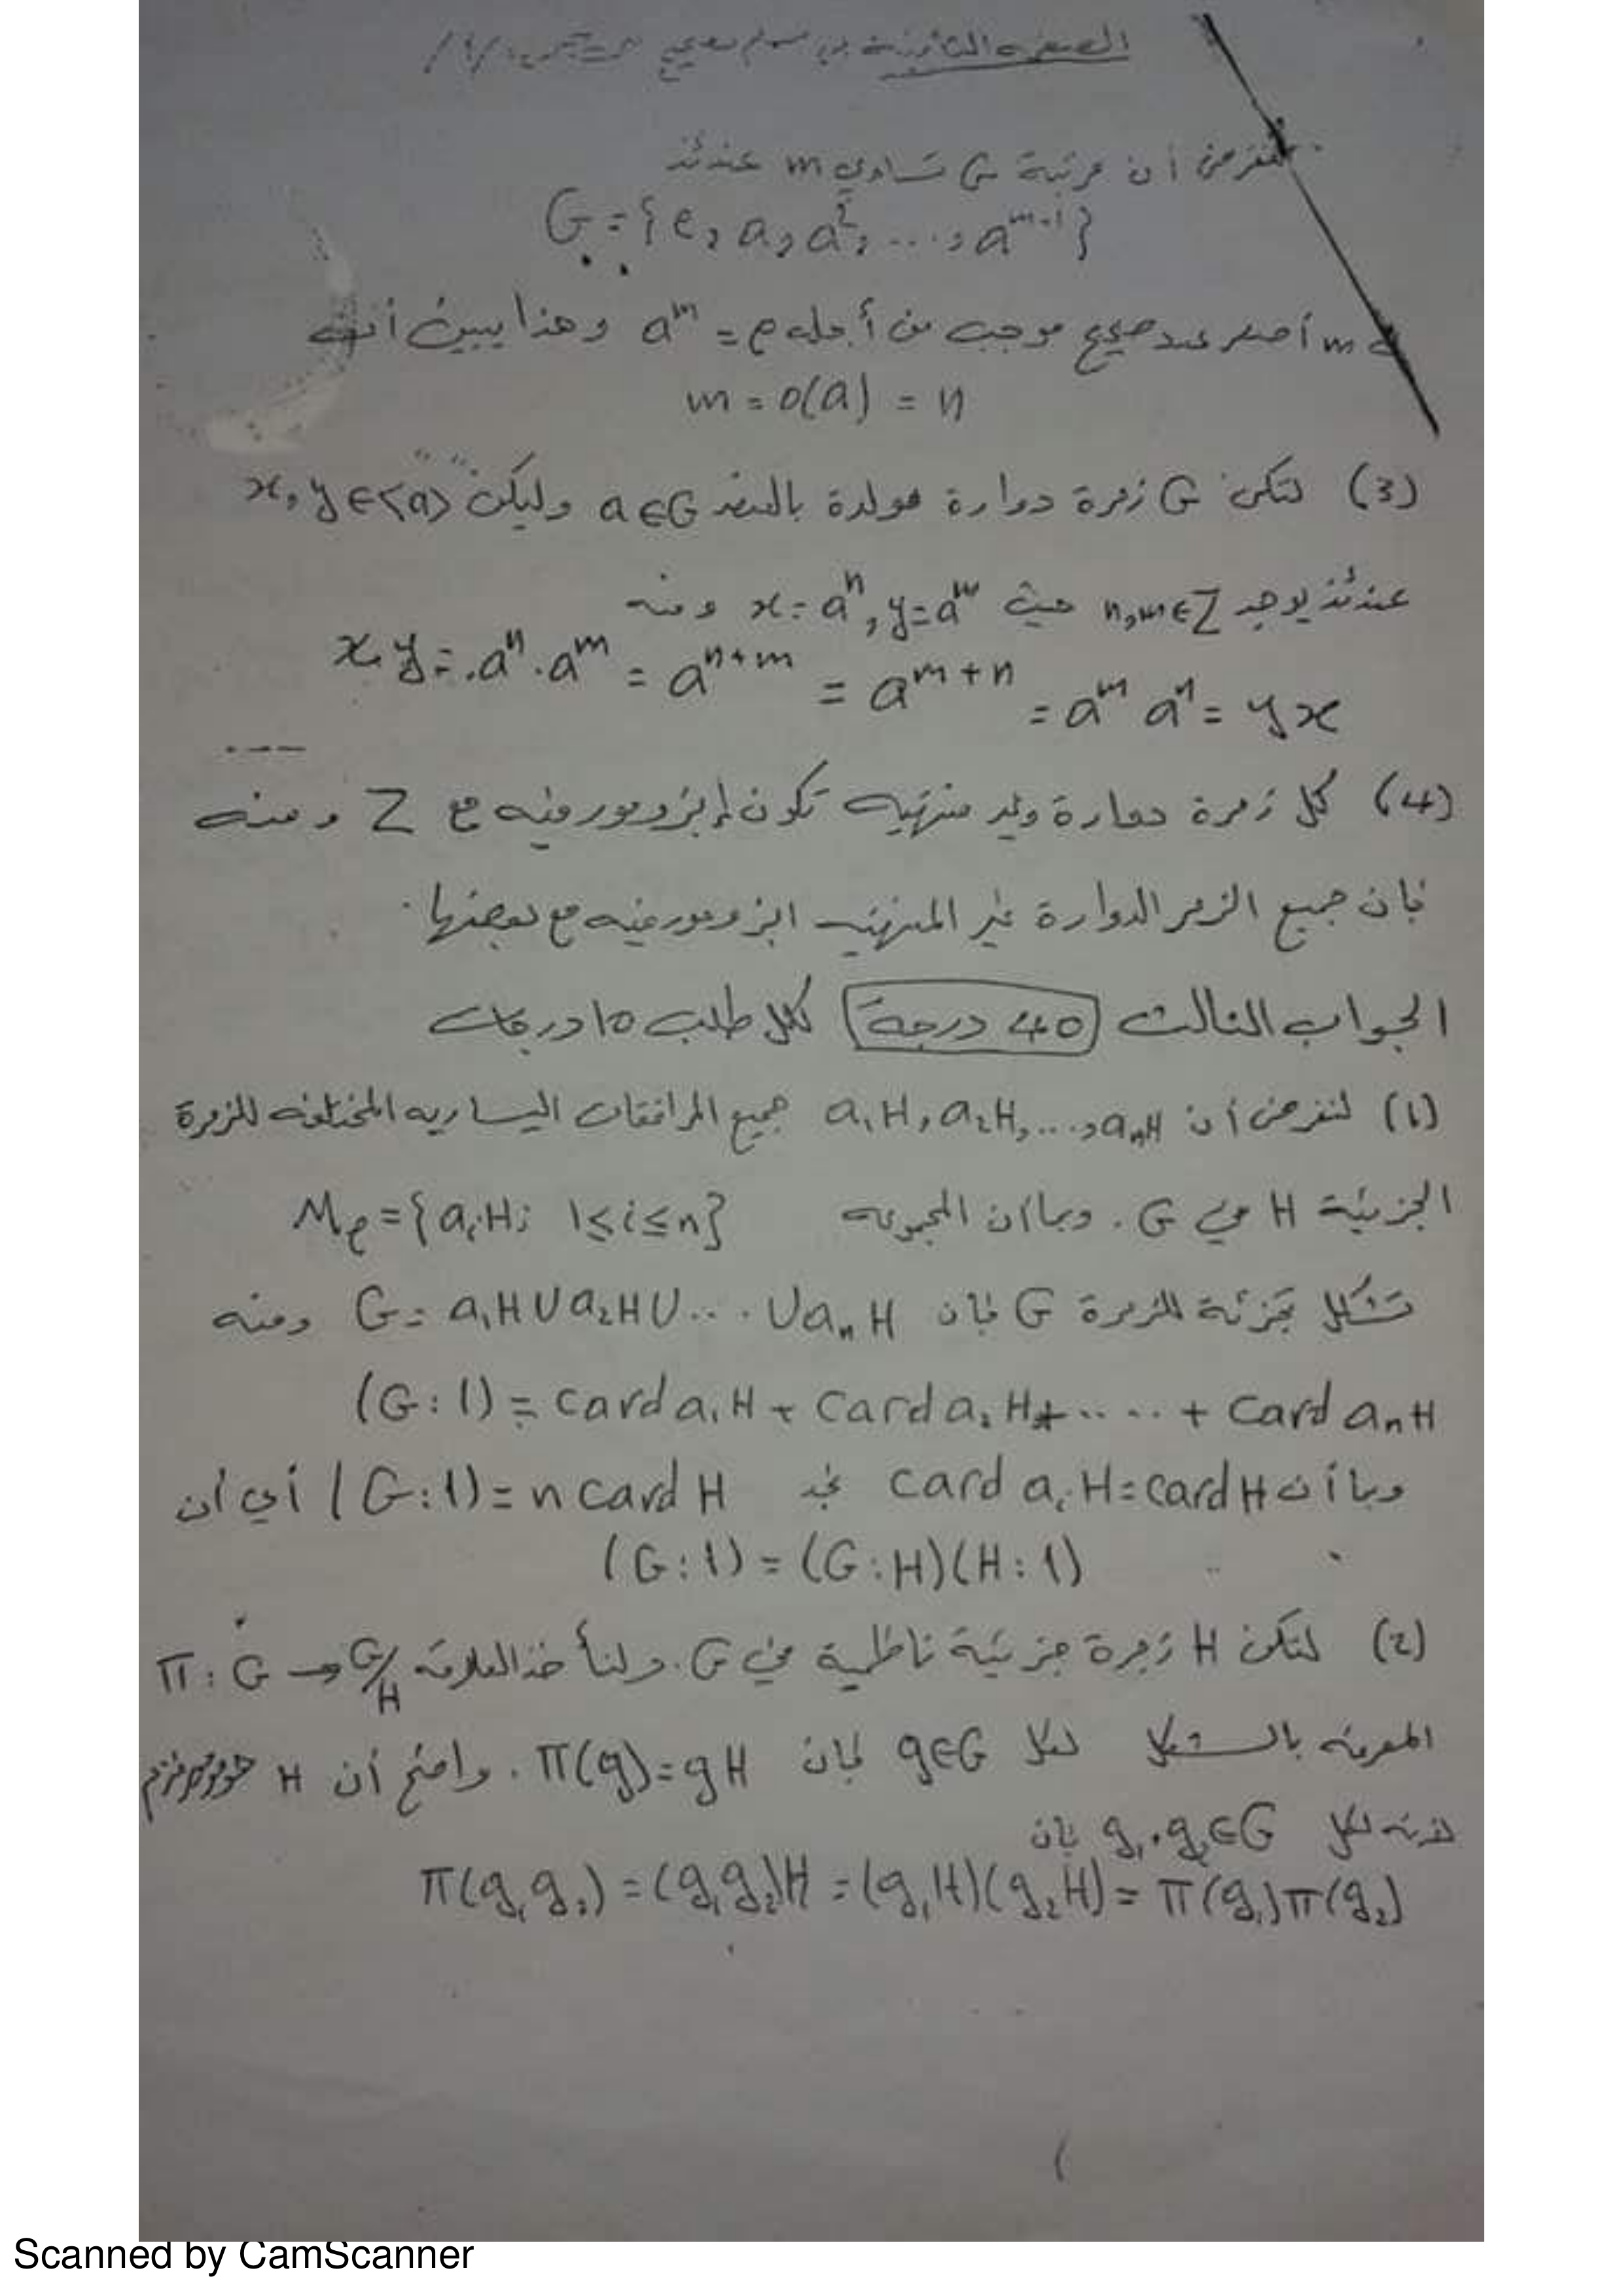 الصفحة الثانية من سلم تصحيح
لنفرض أن مرتبة G تساوي m عندئذ
G = {e, a, a², ..., aᵐ⁻¹}
m أصغر عدد صحيح موجب من أجله aᵐ = e وهذا يبين أنه
m = o(a) = n
(3) لتكن G زمرة دوارة مولدة بالعنصر a∈G وليكن x, y ∈ <a>
عندئذ يوجد n, m ∈ Z حيث x = aⁿ, y = aᵐ ومنه
x.y = aⁿ.aᵐ = aⁿ⁺ᵐ = aᵐ⁺ⁿ = aᵐ aⁿ = yx
(4) كل زمرة دوارة وغير منتهية تكون إيزومورفية مع Z ومنه
فان جميع الزمر الدوارة غير المنتهية ايزومورفية مع بعضها.
الجواب الثالث (40 درجة) لكل طلب 10 درجات
(1) لنفرض أن a₁H, a₂H, ..., aₙH جميع المرافقات اليسارية المختلفة للزمرة
الجزئية H في G. وبما أن المجموعة Mₑ = {aᵢH; 1≤i≤n}
تشكل تجزئة للزمرة G فان G = a₁H∪a₂H∪...∪aₙH ومنه
(G:1) = card a₁H + card a₂H + ..... + card aₙH
وبما أن card aᵢH = card H نجد (G:1) = n card H أي أن
(G:1) = (G:H)(H:1)
(2) لتكن H زمرة جزئية ناظمية في G. ولنأخذ العلاقة π: G → G/H
المعرفة بالشكل لكل g∈G فان π(g) = gH. واضح أن H هومومورفزم
لأنه لكل g₁, g₂∈G فان
π(g₁g₂) = (g₁g₂)H = (g₁H)(g₂H) = π(g₁)π(g₂)
Scanned by CamScanner